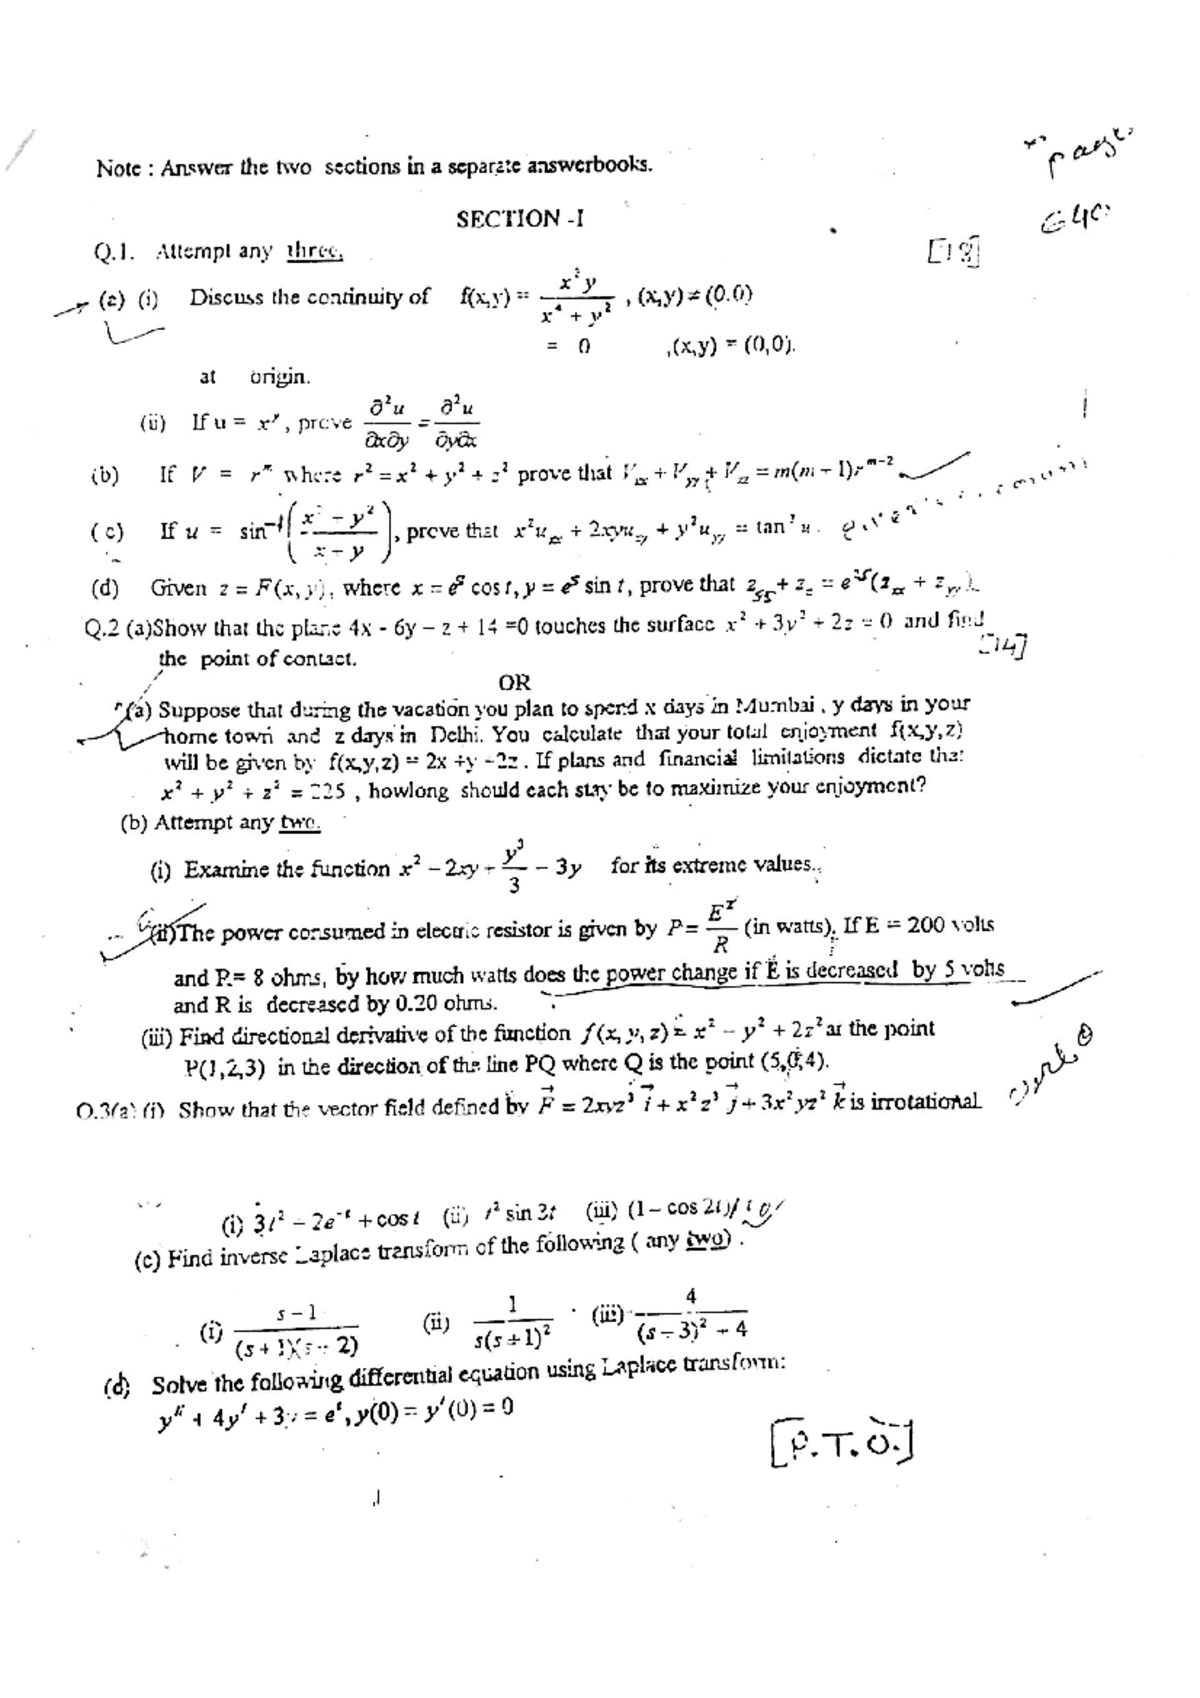 Note : Answer the two sections in a separate answerbooks.
SECTION -I
Q.1. Attempt any three.
[18]
page
640
(a) (i) Discuss the continuity of f(x,y) = x²y / (x⁴ + y²) , (x,y) ≠ (0.0)
= 0 ,(x,y) = (0,0).
at origin.
(ii) If u = xʸ , prove ∂²u/∂x∂y = ∂²u/∂y∂x
(b) If V = rᵐ where r² = x² + y² + z² prove that Vxx + Vyy + Vzz = m(m + 1)rᵐ⁻²
(c) If u = sin⁻¹( (x² + y²) / (x + y) ), prove that x²uxx + 2xyuxy + y²uyy = tan³u .
(d) Given z = F(x, y), where x = eˢ cos t, y = eˢ sin t, prove that zss + = e²ˢ(zxx + zyy).
Q.2 (a)Show that the plane 4x - 6y – z + 14 =0 touches the surface x² + 3y² + 2z = 0 and find
[14]
the point of contact.
OR
(a) Suppose that during the vacation you plan to spend x days in Mumbai , y days in your
home town and z days in Delhi. You calculate that your total enjoyment f(x,y,z)
will be given by f(x,y,z) = 2x +y +2z . If plans and financial limitations dictate that
x² + y² + z² = 225 , howlong should each stay be to maximize your enjoyment?
(b) Attempt any two.
(i) Examine the function x² – 2xy + y³/3 – 3y for its extreme values.
(ii)The power consumed in electric resistor is given by P= E²/R (in watts). If E = 200 volts
and R= 8 ohms, by how much watts does the power change if E is decreased by 5 volts
and R is decreased by 0.20 ohms.
(iii) Find directional derivative of the function f(x, y, z) = x² – y² + 2z² at the point
P(1,2,3) in the direction of the line PQ where Q is the point (5,0,4).
Q.3(a) (i) Show that the vector field defined by F⃗ = 2xyz³ i⃗ + x²z³ j⃗ + 3x²yz² k⃗ is irrotational
(i) 3t² – 2e⁻ᵗ + cos t (ii) t² sin 3t (iii) (1– cos 2t)/t
(c) Find inverse Laplace transform of the following ( any two) .
(i) s – 1 / (s + 1)(s + 2) (ii) 1 / s(s + 1)² (iii) 4 / (s – 3)² + 4
(d) Solve the following differential equation using Laplace transform:
y″ + 4y′ + 3y = eᵗ, y(0) = y′(0) = 0
[P.T.O.]